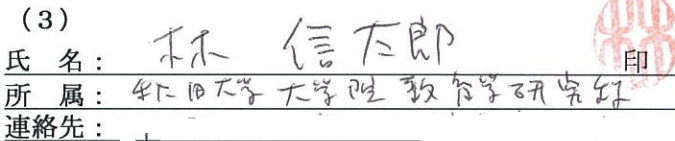 (3)
氏 名： 林 信太郎 印
所 属： 秋田大学 大学院 教育学研究科
連絡先：